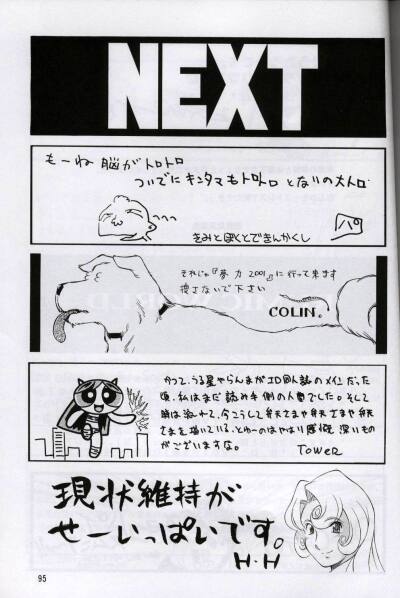 NEXT
もーね 脳がトロトロ
ついでにキンタマもトロトロ
きみとぼくとできんかくし
パ
それじゃ『夢力2001』に行って来ます
捜さないで下さい
COLIN.
かって、うる星やらんまがエロ同人誌のメインだった
頃、私はまだ読み手側の人間でした。そして
時は流れて、今こうして弁天さまや弁天さまや弁天
さまを描いている、とゆーのはやはり感慨深いもの
がございますな。
TOWER
現状維持が
せーいっぱいです。
H.H
95